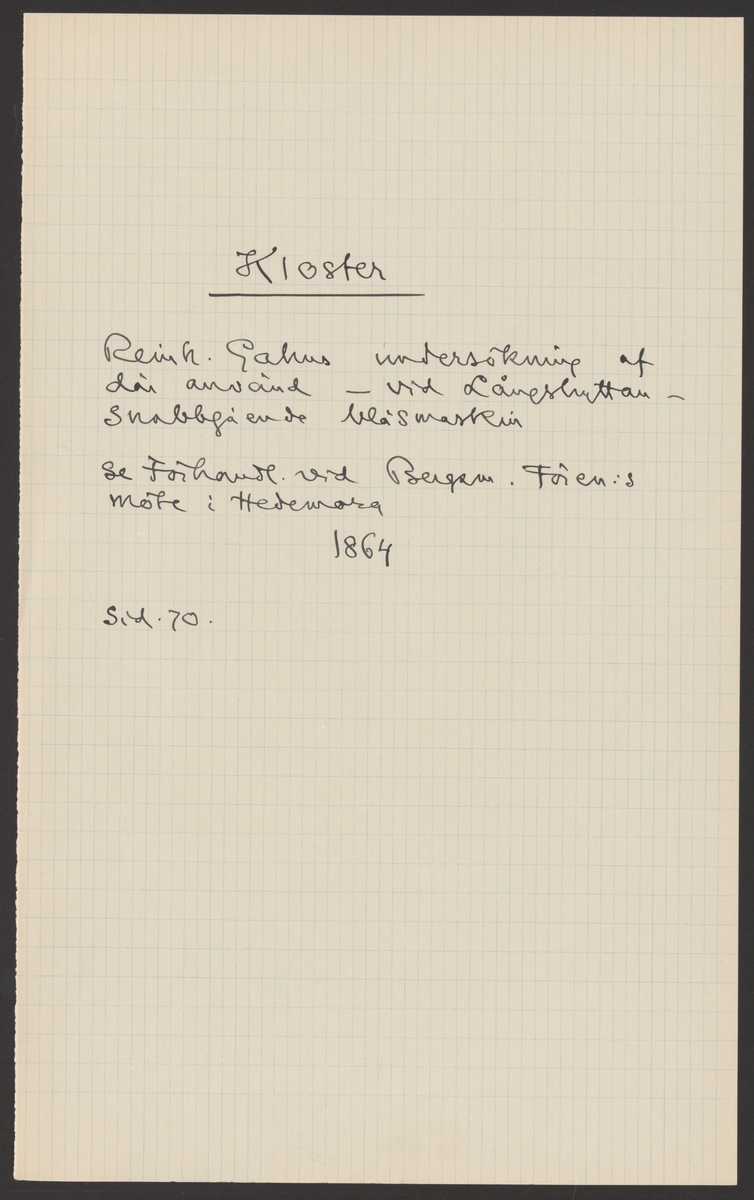 Kloster
Reinh. Gahns undersökning af
där använd – vid Långshyttan –
snabbgående blåsmaskin
se Förhandl. vid Bergsm. Fören:s
möte i Hedemora
1864
Sid. 70.